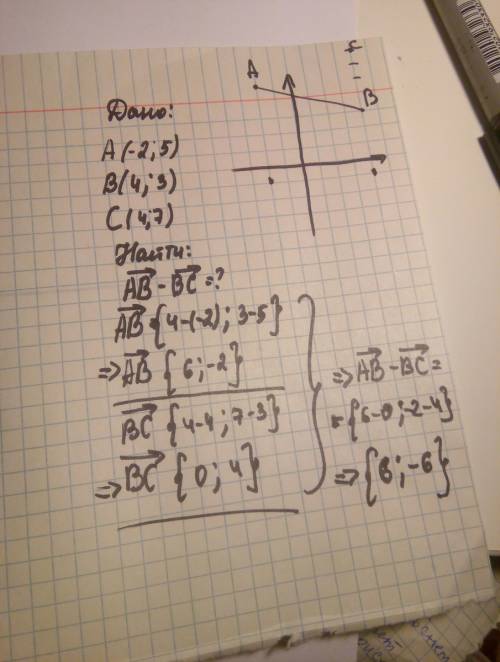 A
C
B
Дано:
A(-2; 5)
B(4; 3)
C(4; 7)
Найти:
AB - BC = ?
AB {4-(-2); 3-5}
=> AB {6; -2}
BC {4-4; 7-3}
=> BC {0; 4}
=> AB - BC =
= {6-0; -2-4}
=> {6; -6}